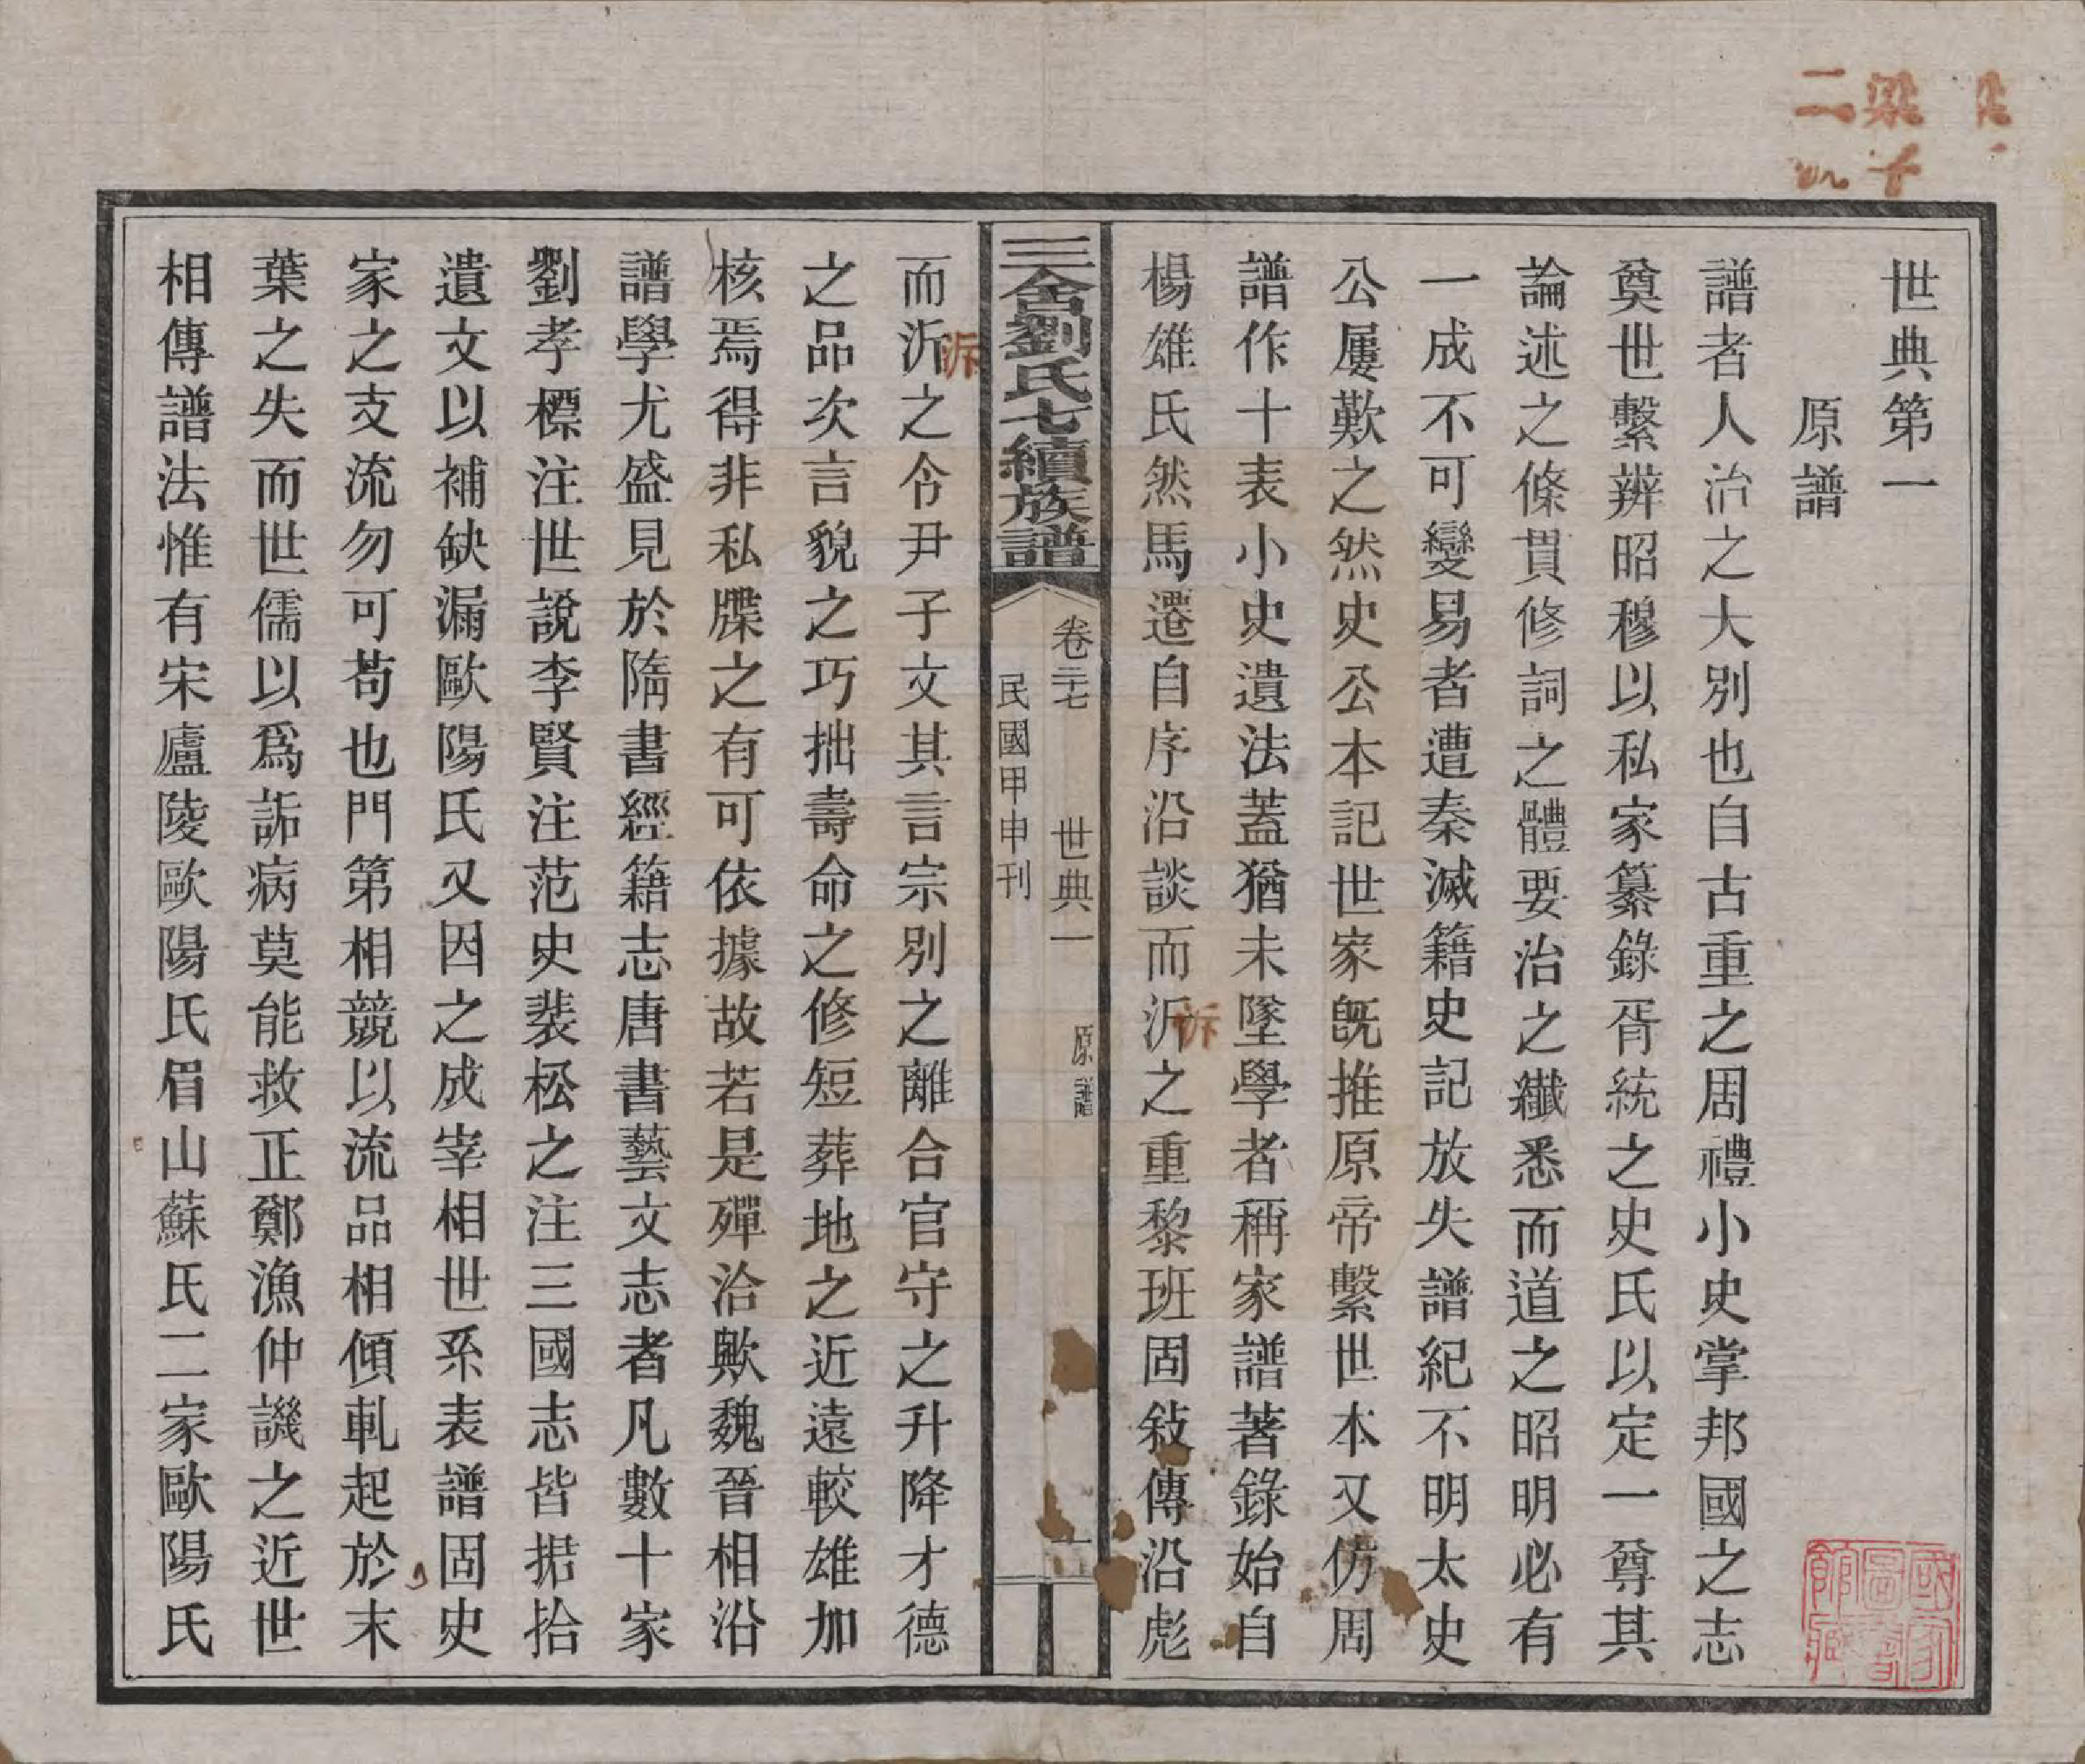 世典第一
原譜
譜者人治之大別也自古重之周禮小史掌邦國之志
奠世繫辨昭穆以私家纂錄胥統之史氏以定一尊其
論述之條貫修詞之體要治之纖悉而道之昭明必有
一成不可變易者遭秦滅籍史記放失譜紀不明太史
公屢歎之然史公本記世家旣推原帝繫世本又仿周
譜作十表小史遺法蓋猶未墜學者稱家譜著錄始自
楊雄氏然馬遷自序沿談而沂之重黎班固敍傳沿彪
泝
三舍劉氏七續族譜
卷三十七 世典一 原譜 一
民國甲申刊
而沂之令尹子文其言宗別之離合官守之升降才德
泝
之品次言貌之巧拙壽命之修短葬地之近遠較雄加
核焉得非私牒之有可依據故若是殫洽歟魏晉相沿
譜學尤盛見於隋書經籍志唐書藝文志者凡數十家
劉孝標注世說李賢注范史裴松之注三國志皆据拾
遺文以補缺漏歐陽氏又因之成宰相世系表譜固史
家之支流勿可苟也門第相競以流品相傾軋起於末
葉之失而世儒以爲詬病莫能救正鄭漁仲譏之近世
相傳譜法惟有宋廬陵歐陽氏眉山蘇氏二家歐陽氏
國家圖書館藏